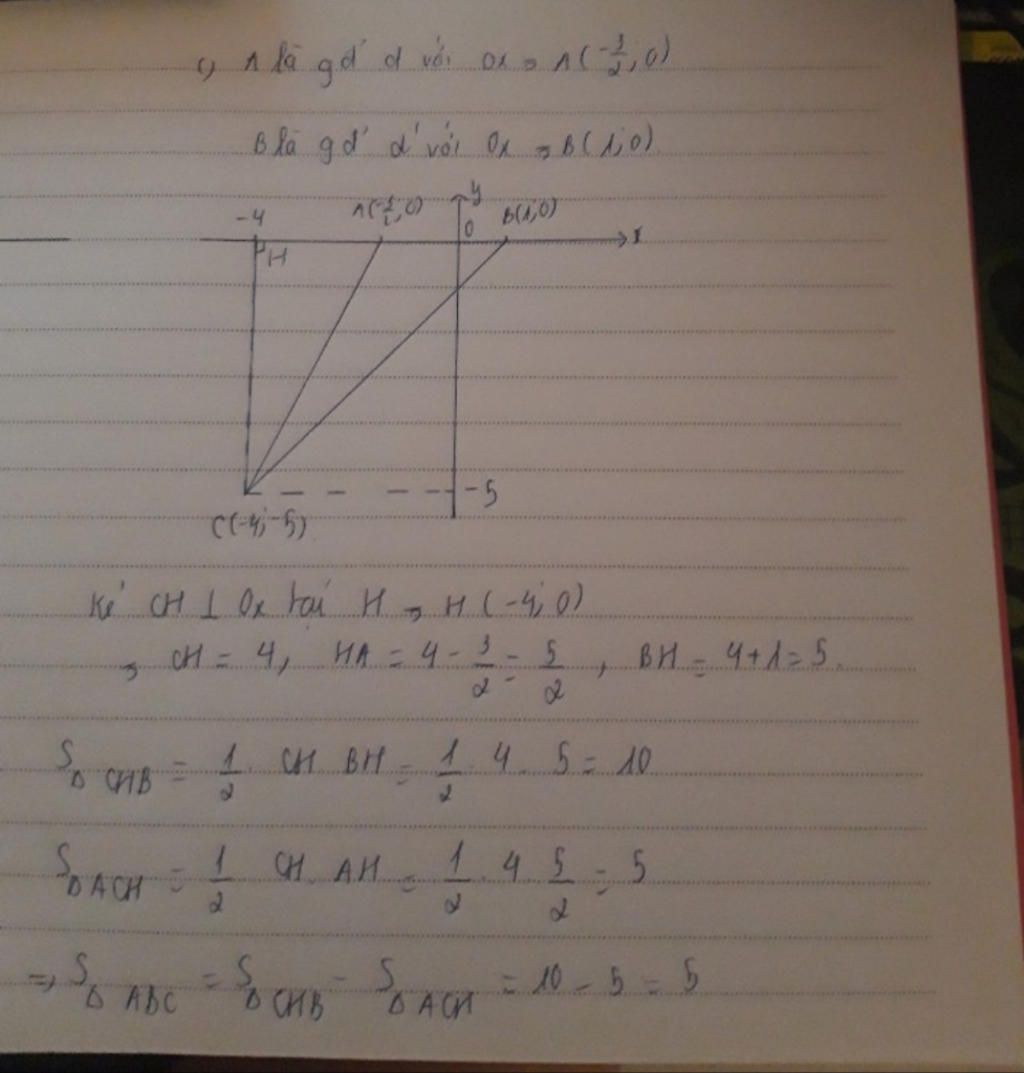 c, A là gđ' d với Ox ⇒ A(-3/2; 0)
B là gđ' d' với Ox ⇒ B(1; 0)
-4 A(-3/2; 0) y B(1; 0)
0 x
H
-5
C(-4; -5)
Kẻ CH ⊥ Ox tại H ⇒ H (-4; 0)
⇒ CH = 4, HA = 4 - 3/2 = 5/2, BH = 4+1=5.
S Δ CHB = 1/2 . CH BH = 1/2 . 4 . 5 = 10
S Δ ACH = 1/2 CH . AH = 1/2 . 4 5/2 = 5
⇒ S Δ ABC = S Δ CHB - S Δ ACH = 10 - 5 = 5